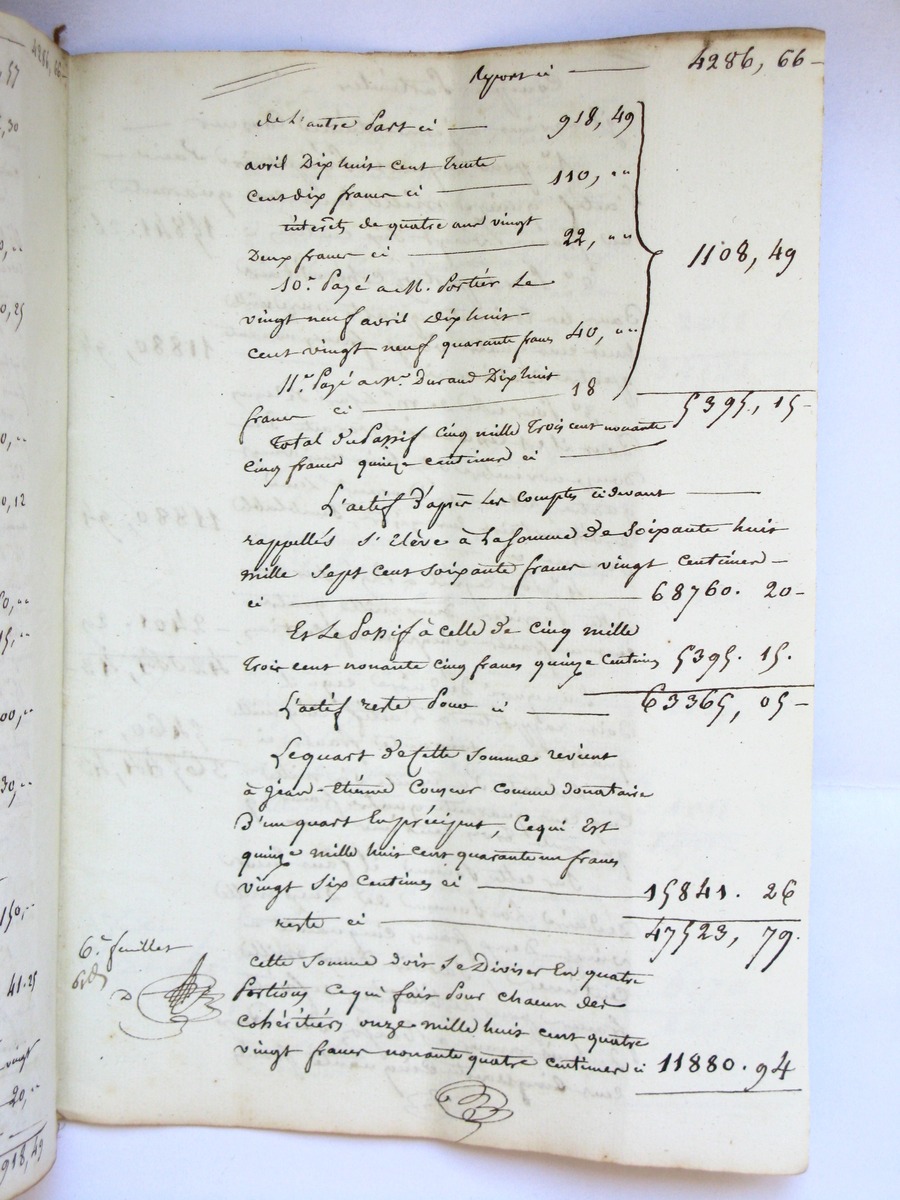 4286, 66
Report ci — 4286, 66 —
de L'autre Part ci — 918, 49
avril Dix huit cent trente
cent dix francs ci — 110, " "
intérêts de quatre ans vingt
Deux francs ci — 22, " "
1108, 49
10.° Payé a M. Portier Le
vingt neuf avril dix huit-
cent vingt neuf quarante francs 40, " "
11.° Payé a M.r Durand Dix huit
francs ci — 18
5395, 15 —
Total du Passif Cinq mille trois cent nonante
Cinq francs quinze centimes ci —
L'actif d'après les comptes cidevant —
rappellés s'élève à la somme de Soixante huit
mille sept cent soixante francs vingt centimes —
ci — 68760. 20 —
Et Le Passif à celle de Cinq mille
trois cent nonante cinq francs quinze centimes 5395. 15.
L'actif reste Pour ci — 63365, 05 —
Le quart de Cette somme revient
à Jean-Etienne comme donataire
D'un quart En préciput, Ce qui Est
quinze mille huit cent quarante un francs
vingt six Centimes ci — 15841. 26
reste ci — 47523, 79.
6.e feuillet
cette somme doit se Diviser En quatre
Portions Ce qui fait Pour chacun des
cohéritiers onze mille huit cent quatre
vingt francs nonante quatre centimes ci 11880. 94
57
,30
0, 25
0, 12
15, "
00, "
30, "
150, -
41. 25
vingt
20, "
918, 49